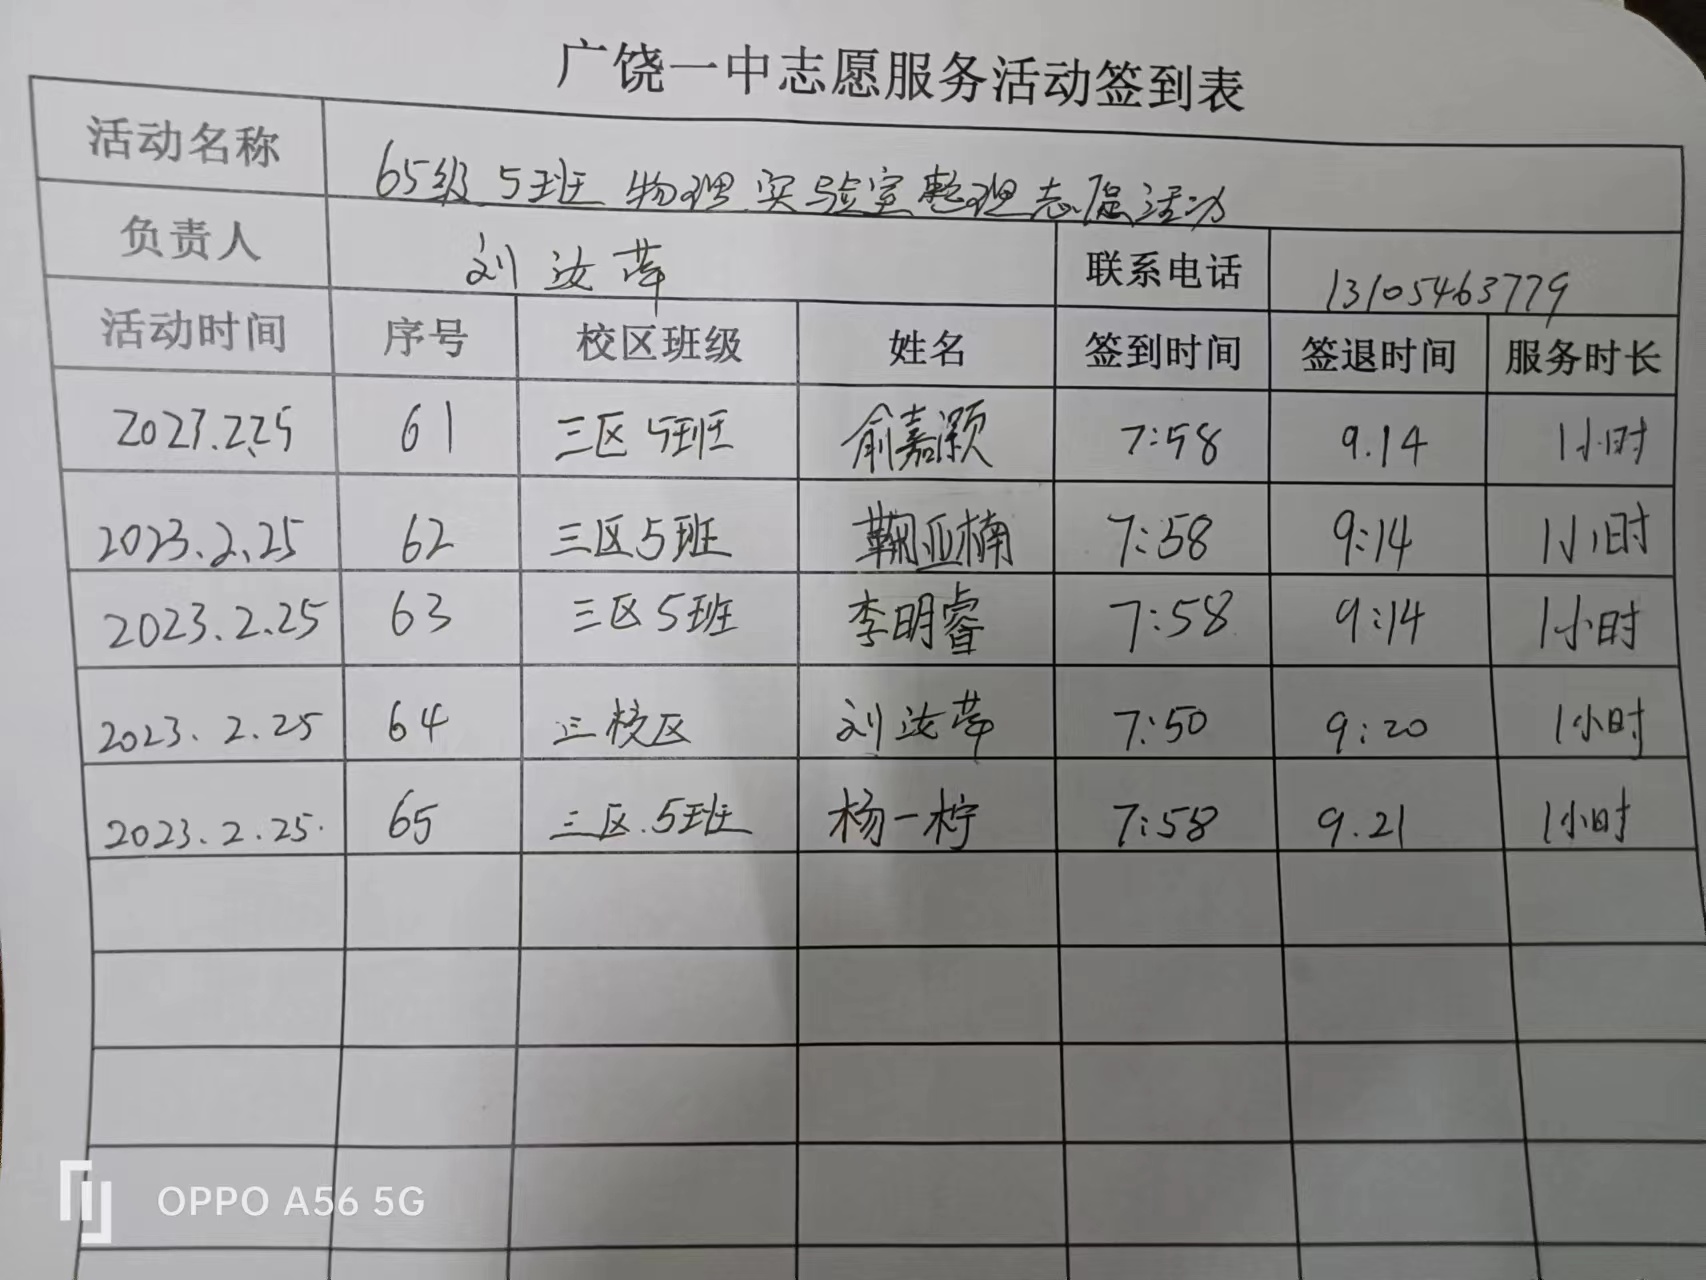 广饶一中志愿服务活动签到表
活动名称 65级5班物理实验室整理志愿活动
负责人 刘汝萍 联系电话 13105463779
活动时间 序号 校区班级 姓名 签到时间 签退时间 服务时长
2023.2.25 61 三区5班 俞嘉颖 7:58 9.14 1小时
2023.2.25 62 三区5班 鞠亚楠 7:58 9:14 1小时
2023.2.25 63 三区5班 李明睿 7:58 9:14 1小时
2023.2.25 64 三校区 刘汝萍 7:50 9:20 1小时
2023.2.25. 65 三区.5班 杨一柠 7:58 9.21 1小时
OPPO A56 5G